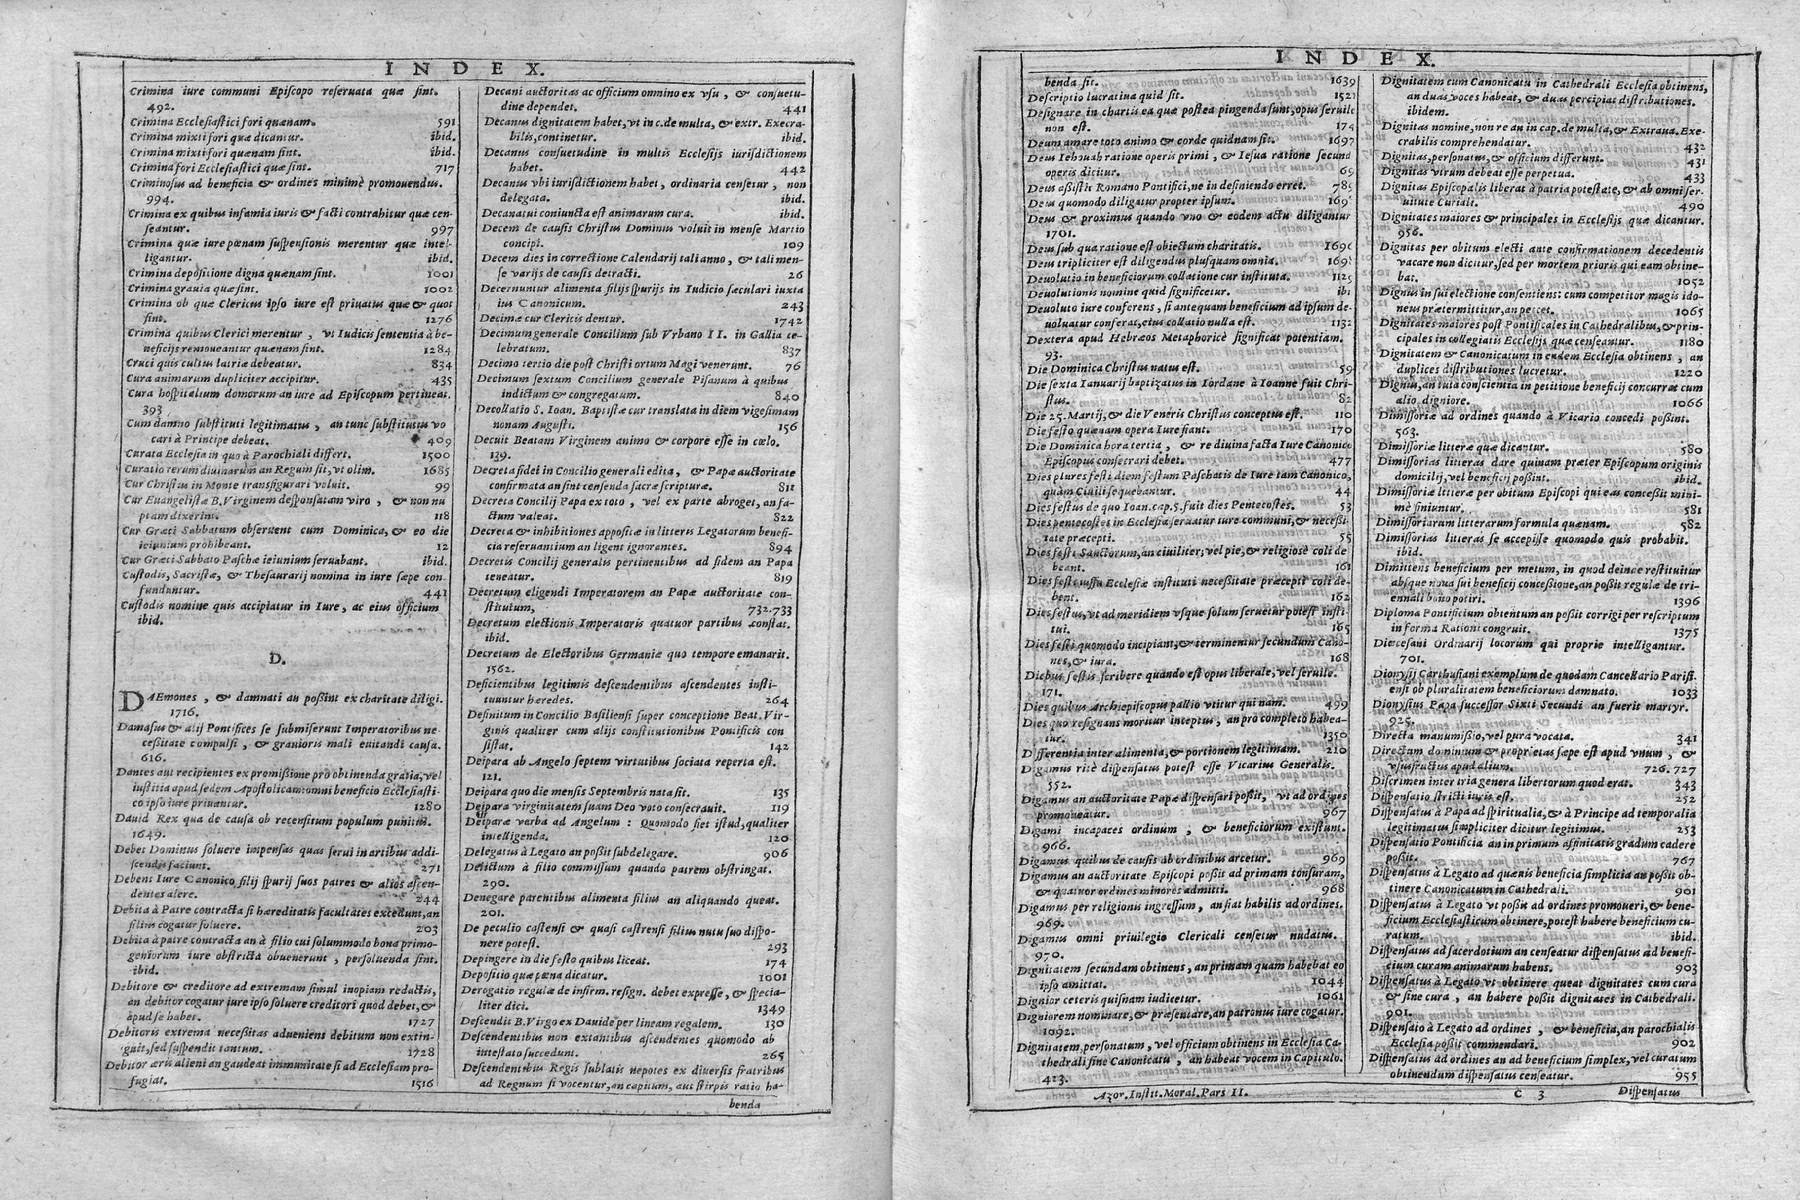 INDEX.
Crimina iure communi Episcopo reseruata quæ sint.
492.
Crimina Ecclesiastici fori quænam. 591
Crimina mixti fori quæ dicantur. ibid.
Crimina mixti fori quænam sint. ibid.
Crimina fori Ecclesiastici quæ sint. 717
Criminosus ad beneficia & ordines minimè promouendus.
994.
Crimina ex quibus infamia iuris & facti contrahitur quæ cen-
seantur. 997
Crimina quæ iure pœnam suspensionis merentur quæ intel-
ligantur. ibid.
Crimina depositione digna quænam sint. 1001
Crimina grauia quæ sint. 1002
Crimina ob quæ Clericus ipso iure est priuatus quæ & quot
sint. 1276
Crimina quibus Clerici merentur, vt Iudicis sententia à be-
neficijs remoueantur quænam sint. 1284
Cruci quis cultus latriæ debeatur. 834
Cura animarum dupliciter accipitur. 435
Cura hospitalium domorum an iure ad Episcopum pertineat.
393
Cum damno substituti legitimatus, an tunc substitutus vo
cari à Principe debeat. 409
Curata Ecclesia in quo à Parochiali differt. 1500
Curatio rerum diuinarum an Regum sit, vt olim. 1685
Cur Christus in Monte transfigurari voluit. 99
Cur Euangelistæ B. Virginem desponsatam viro, & non nu
ptam dixerint. 118
Cur Græci Sabbatum obseruent cum Dominica, & eo die
ieiunium prohibeant. 12
Cur Græci Sabbato Paschæ ieiunium seruabant. ibid.
Custodis, Sacristæ, & Thesaurarij nomina in iure sæpe con
funduntur. 441
Custodis nomine quis accipiatur in Iure, ac eius officium
ibid.
D.
DAEmones, & damnati an possint ex charitate diligi.
1716.
Damasus & alij Pontifices se submiserunt Imperatoribus ne-
cessitate compulsi, & grauioris mali euitandi causa.
616.
Dantes aut recipientes ex promissione pro obtinenda gratia, vel
iustitia apud sedem Apostolicam omni beneficio Ecclesiasti-
co ipso iure priuantur. 1280
Dauid Rex qua de causa ob recensitum populum punitus.
1649.
Debet Dominus soluere impensas quas serui in artibus addi-
scendis faciunt. 271
Debent Iure Canonico filij spurij suos patres & alios ascen-
dentes alere. 244
Debita à Patre contracta si hæreditatis facultates excedunt, an
filius cogatur soluere. 203
Debita à patre contracta an à filio cui solummodo bona primo-
geniorum iure obstricta obuenerunt, persoluenda sint.
ibid.
Debitore & creditore ad extremam simul inopiam reductis,
an debitor cogatur iure ipso soluere creditori quod debet, &
apud se habet. 1727
Debitoris extrema necessitas adueniens debitum non extin-
guit, sed suspendit tantum. 1728
Debitor æris alieni an gaudeat immunitate si ad Ecclesiam pro-
fugiat. 1516
Decani auctoritas ac officium omnino ex vsu, & consuetu-
dine dependet. 441
Decanus dignitatem habet, vt in c. de multa, & extr. Execra-
bilis, continetur. ibid.
Decanus consuetudine in multis Ecclesijs iurisdictionem
habet. 442
Decanus vbi iurisdictionem habet, ordinaria censetur, non
delegata. ibid.
Decanatui coniuncta est animarum cura. ibid.
Decem de causis Christus Dominus voluit in mense Martio
concipi. 109
Decem dies in correctione Calendarij tali anno, & tali men-
se varijs de causis detracti. 26
Decernuntur alimenta filijs spurijs in Iudicio sæculari iuxta
ius Canonicum. 243
Decimæ cur Clericis dentur. 1742
Decimum generale Concilium sub Vrbano II. in Gallia ce-
lebratum. 837
Decimo tertio die post Christi ortum Magi venerunt. 76
Decimum sextum Concilium generale Pisanum à quibus
indictum & congregatum. 840
Decollatio S. Ioan. Baptistæ cur translata in diem vigesimam
nonam Augusti. 156
Decuit Beatam Virginem animo & corpore esse in cœlo.
139.
Decreta fidei in Concilio generali edita, & Papæ auctoritate
confirmata an sint censenda sacræ scripturæ. 811
Decreta Concilij Papa ex toto, vel ex parte abroget, an fa-
ctum valeat. 822
Decreta & inhibitiones appositæ in litteris Legatorum benefi-
cia reseruantium an ligent ignorantes. 894
Decretis Concilij generalis pertinentibus ad fidem an Papa
teneatur. 819
Decretum eligendi Imperatorem an Papæ auctoritate con-
stitutum, 732.733
Decretum electionis Imperatoris quatuor partibus constat.
ibid.
Decretum de Electoribus Germaniæ quo tempore emanarit.
1562.
Deficientibus legitimis descendentibus ascendentes insti-
tuuntur hæredes. 264
Definitum in Concilio Basiliensi super conceptione Beat. Vir-
ginis qualiter cum alijs constitutionibus Pontificis con
sistat. 142
Deipara ab Angelo septem virtutibus sociata reperta est.
121.
Deipara quo die mensis Septembris nata sit. 135
Deipara virginitatem suam Deo voto consecrauit. 119
Deiparæ verba ad Angelum: Quomodo fiet istud, qualiter
intelligenda. 120
Delegatus à Legato an possit subdelegare. 906
Delictum à filio commissum quando patrem obstringat.
290.
Denegare parentibus alimenta filius an aliquando queat.
201.
De peculio castensi & quasi castrensi filius nutu suo dispo-
nere potest. 293
Depingere in die festo quibus liceat. 174
Depositio quæ pœna dicatur. 1001
Derogatio regulæ de infirm. resign. debet expresse, & specia-
liter dici. 1349
Descendit B. Virgo ex Dauide per lineam regalem. 130
Descendentibus non extantibus ascendentes quomodo ab
intestato succedunt. 265
Descendentibus Regis sublatis nepotes ex diuersis fratribus
ad Regnum si vocentur, an capitum, aut stirpis ratio ha-
benda
INDEX.
benda sit. 1639
Descriptio lucratiua quid sit. 1521
Designare in chartis ea quæ postea pingenda sunt, opus seruile
non est. 174
Deum amare toto animo & corde quidnam sit. 1697
Deus Iehouah ratione operis primi, & Iesua ratione secundi
operis dicitur. 69
Deus assistit Romano Pontifici, ne in definiendo erret. 785
Deus quomodo diligatur propter ipsum. 169
Deus & proximus quando vno & eodem actu diligantur
1701.
Deus sub qua ratione est obiectum charitatis. 1690
Deus tripliciter est diligendus plusquam omnia. 169
Deuolutio in beneficiorum collatione cur instituta. 1125
Deuolutionis nomine quid significetur. ibi
Deuoluto iure conferens, si antequam beneficium ad ipsum de-
uoluatur conferat, eius collatio nulla est. 1132
Dextera apud Hebræos Metaphoricè significat potentiam.
93.
Die Dominica Christus natus est. 59
Die sexta Ianuarij baptizatus in Iordane à Ioanne fuit Chri-
stus. 82
Die 25. Martij, & die Veneris Christus conceptus est. 110
Die festo quænam opera Iure fiant. 170
Die Dominica hora tertia, & re diuina facta Iure Canonico
Episcopus consecrari debet. 477
Dies plures festi diem festum Paschatis de Iure tam Canonico,
quàm Ciuili sequebantur. 44
Dies festus de quo Ioan. cap. 5. fuit dies Pentecostes. 53
Dies pentecostes in Ecclesia seruatur iure communi, & necessi-
tate præcepti. 55
Dies festi Sanctorum, an ciuiliter, vel pie, & religiose coli de
beant. 161
Dies festi iussu Ecclesiæ instituti necessitate præcepti coli de-
bent. 162
Dies festus, vt ad meridiem vsque solum seruetur potest insti-
tui. 165
Dies festi quomodo incipiant, & terminentur secundum Cano-
nes, & iura. 168
Diebus festis scribere quando est opus liberale, vel seruile.
171.
Dies quibus Archiepiscopus pallio vtitur qui nam. 499
Dies quo resignans moritur inceptus, an pro completo habea-
tur. 1350
Differentia inter alimenta, & portionem legitimam. 210
Digamus ritè dispensatus potest esse Vicarius Generalis.
552.
Digamus an auctoritate Papæ dispensari possit, vt ad ordines
promoueatur. 967
Digami incapaces ordinum, & beneficiorum existunt.
966.
Digamus quibus de causis ab ordinibus arcetur. 969
Digamus an auctoritate Episcopi possit ad primam tonsuram,
& quatuor ordines minores admitti. 968
Digamus per religionis ingressum, an fiat habilis ad ordines.
969.
Digamus omni priuilegio Clericali censetur nudatus.
970.
Dignitatem secundam obtinens, an primam quam habebat eo
ipso amittat. 1044
Dignior ceteris quisnam iudicetur. 1061
Digniorem nominare, & præsentare, an patronus iure cogatur.
1092.
Dignitatem, personatum, vel officium obtinens in Ecclesia Ca-
thedrali sine Canonicatu, an habeat vocem in Capitulo.
423.
Dignitatem cum Canonicatu in Cathedrali Ecclesia obtinens,
an duas voces habeat, & duas percipiat distributiones.
ibidem.
Dignitas nomine, non re an in cap. de multa, & Extraua. Exe-
crabilis comprehendatur. 432
Dignitas, personatus, & officium differunt. 431
Dignitas virum debeat esse perpetua. 433
Dignitas Episcopalis liberat à patria potestate, & ab omni ser-
uitute Curiali. 490
Dignitates maiores & principales in Ecclesijs quæ dicantur.
956.
Dignitas per obitum electi ante confirmationem decedentis
vacare non dicitur, sed per mortem prioris qui eam obtine-
bat. 1052
Dignus in sui electione consentiens: cum competitor magis ido-
neus prætermittitur, an peccet. 1065
Dignitates maiores post Pontificales in Cathedralibus, & prin-
cipales in collegiatis Ecclesijs quæ censeantur. 1180
Dignitatem & Canonicatum in eadem Ecclesia obtinens, an
duplices distributiones lucretur. 1220
Dignus, an tuta conscientia in petitione beneficij concurrat cum
alio digniore. 1066
Dimissoriæ ad ordines quando à Vicario concedi possint.
563.
Dimissoriæ litteræ quæ dicantur. 580
Dimissorias litteras dare quinam præter Episcopum originis
domicilij, vel beneficij possint. ibid.
Dimissoriæ litteræ per obitum Episcopi qui eas concessit mini-
mè finiuntur. 581
Dimissoriarum litterarum formula quænam. 582
Dimissorias litteras se accepisse quomodo quis probabit.
ibid.
Dimittens beneficium per metum, in quod deinde restituitur
absque noua sui beneficij concessione, an possit regulæ de tri-
ennali bono potiri. 1396
Diploma Pontificium obtentum an possit corrigi per rescriptum
in forma Rationi congruit. 1375
Diœcesani Ordinarij locorum qui proprie intelligantur.
701.
Dionysij Carthusiani exemplum de quodam Cancellario Parisi-
ensi ob pluralitatem beneficiorum damnato. 1033
Dionysius Papa successor Sixti Secundi an fuerit martyr.
925.
Directa manumissio, vel pura vocata. 341
Directum dominium & proprietas sæpe est apud vnum, &
vsusfructus apud alium. 726.727
Discrimen inter tria genera libertorum quod erat. 343
Dispensatio stricti iuris est. 252
Dispensatus à Papa ad spiritualia, & à Principe ad temporalia
legitimatus simpliciter dicitur legitimus. 253
Dispensatio Pontificia an in primum affinitatis gradum cadere
possit. 767
Dispensatus à Legato ad quæuis beneficia simplicia an possit ob-
tinere Canonicatum in Cathedrali. 901
Dispensatus à Legato vt possit ad ordines promoueri, & bene-
ficium Ecclesiasticum obtinere, potest habere beneficium cu-
ratum. ibid.
Dispensatus ad sacerdotium an censeatur dispensatus ad benefi-
cium curam animarum habens. 903
Dispensatus à Legato vt obtinere queat dignitates cum cura
& sine cura, an habere possit dignitates in Cathedrali.
901.
Dispensatio à Legato ad ordines, & beneficia, an parochialis
Ecclesia possit commendari. 902
Dispensatus ad ordines an ad beneficium simplex, vel curatum
obtinendum dispensatus censeatur. 955
Azor. Instit. Moral. Pars II. C 3 Dispensatus